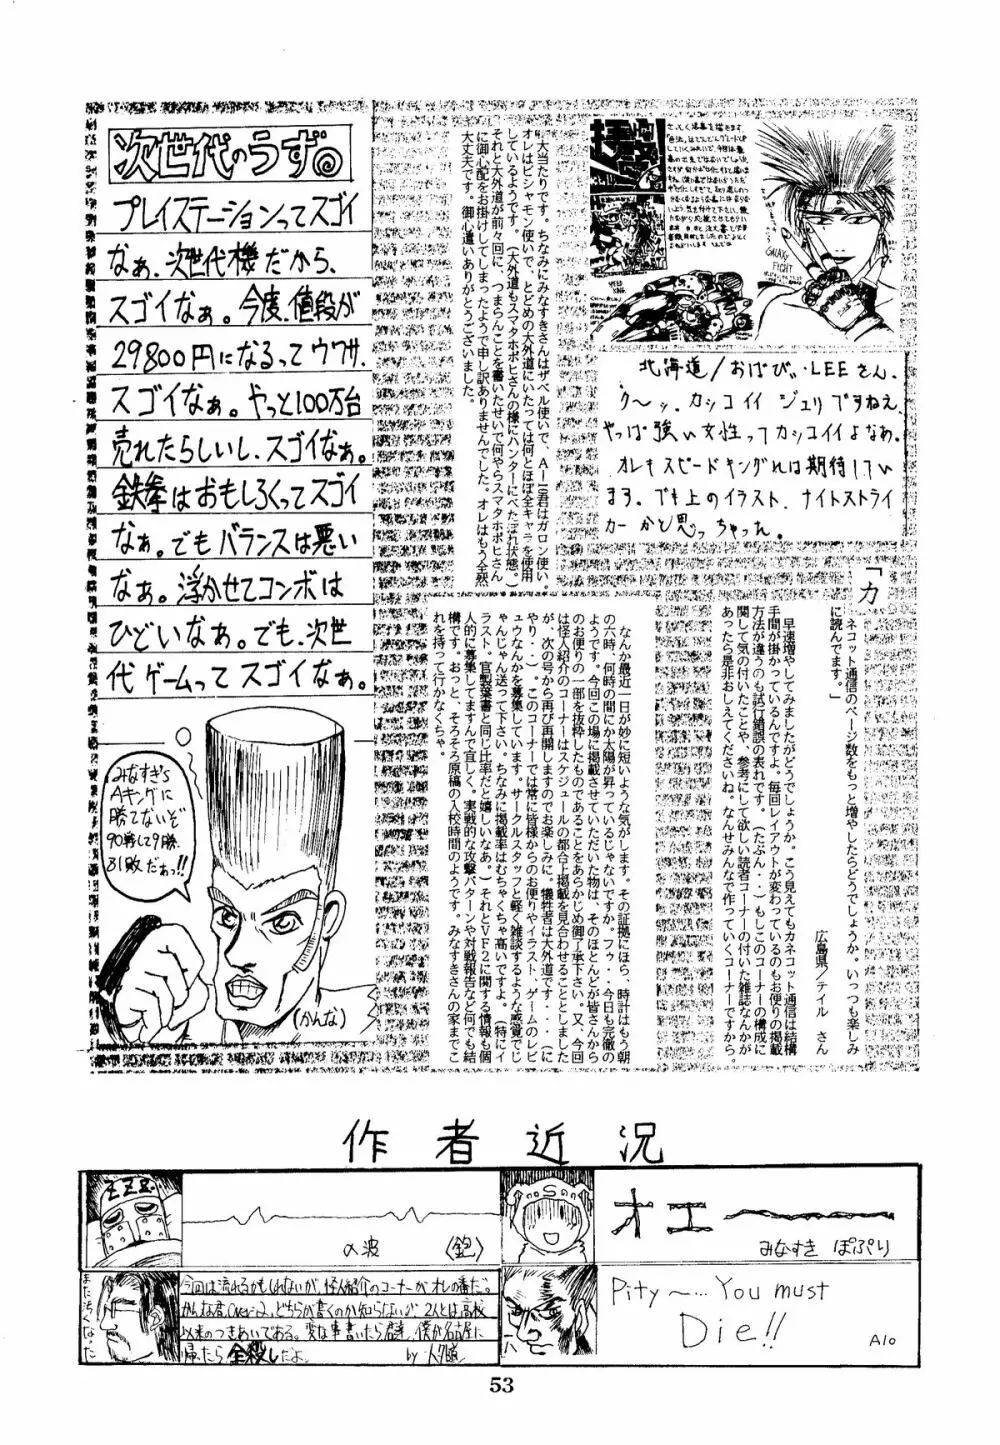 次世代のうず
プレイステーションってスゴイ
なぁ、次世代機だから、
スゴイなぁ。今度、値段が
29800円になるってウワサ、
スゴイなぁ。やっと100万台
売れたらしいし、スゴイなぁ。
鉄拳はおもしろくってスゴイ
なぁ。でもバランスは悪い
なぁ。浮かせてコンボは
ひどいなぁ。でも、次世
代ゲームってスゴイなぁ。
みなすぎ's
Aキングに
勝てないぞ
90戦して9勝
81敗だぁっ!!
(かんな)
大当たりです。ちなみにみなすきさんはザベル使いで、AIO君はガロン使い、
オレはビシャモン使いで、とどめの大外道にいたっては何とほぼ全キャラを使用
しているようです。(大外道もスマタホポヒさんの様にハンターにべたぼれ状態。)
それと大外道が前々回に、つまらんことを書いたせいで何やらスマタホポヒさん
に御心配をお掛けしてしまったようで申し訳ありませんでした。オレはもう全然
大丈夫です。御心遣いありがとうございました。
GALAXY
FIGHT
北海道/おばびぃ・LEEさん、
う〜ッ、カッコイイ ジュリですねえ、
やっぱ強い女性ってカッコイイよなあ。
オレもスピードキングれは期待してい
ます。でも上のイラスト、ナイトストライ
カーかと思っちゃった。
「カネコット通信のページ数をもっと増やしたらどうでしょうか。いっつも楽しみ
に読んでます。」
広島県/テイル さん
早速増やしてみましたがどうでしょうか。こう見えてもカネコット通信は結構
手間が掛かっているんですよ。毎回レイアウトが変わっているのもお便りの掲載
方法が違うのも試行錯誤の表れです。(たぶん・・)もしこのコーナーの構成に
関して気の付いたことや、参考にして欲しい読者コーナーの付いた雑誌なんかが
あったら是非おしえてくださいね。なんせみんなで作っていくコーナーですから。
なんか最近一日が妙に短いような気がします。その証拠にほら、時計はもう朝
の六時、何時の間にか太陽が昇っているじゃないですか。フゥ・・今日も完徹の
ようです。今回この場に掲載させていただいた物は、そのほとんどが皆さんから
のお便りの一部を抜粋したものであることをあらかじめ御了承下さい。又、今回
は怪人紹介のコーナーはスケジュールの都合上掲載を見合わせることとしました
が、次の号から再び再開しますのでお楽しみに。犠牲者は大外道です・・・(に
やり・)。このコーナーでは常に皆様からのお便りやイラスト、ゲームのレビ
ュウなんかを募集しています。サークルスタッフと軽く雑談するような感覚でじ
ゃんじゃん送って下さい。ちなみに掲載率はむちゃくちゃ高いですよ。(特にイ
ラスト。官製葉書と同じ比率だと嬉しいなあ。)それとVF2に関する情報も個
人的に募集してますんで宜しく。実戦的な攻撃パターンや対戦報告など何でも結
構です。おっと、そろそろ原稿の入校時間のようです。みなすきさんの家までこ
れを持って行かなくちゃ。
作者近況
ZZZ
の波 〈鉋〉
S
オエ〜
みなすき ぽぷり
また汚くなった
今回は流れるかもしれないが、怪人紹介のコーナーがオレの番だ。
以来のつきあいである。変な事書いたら
帰ったら全殺しだよ。 by 大外道
Pity〜… You must
Die!!
AIO
53